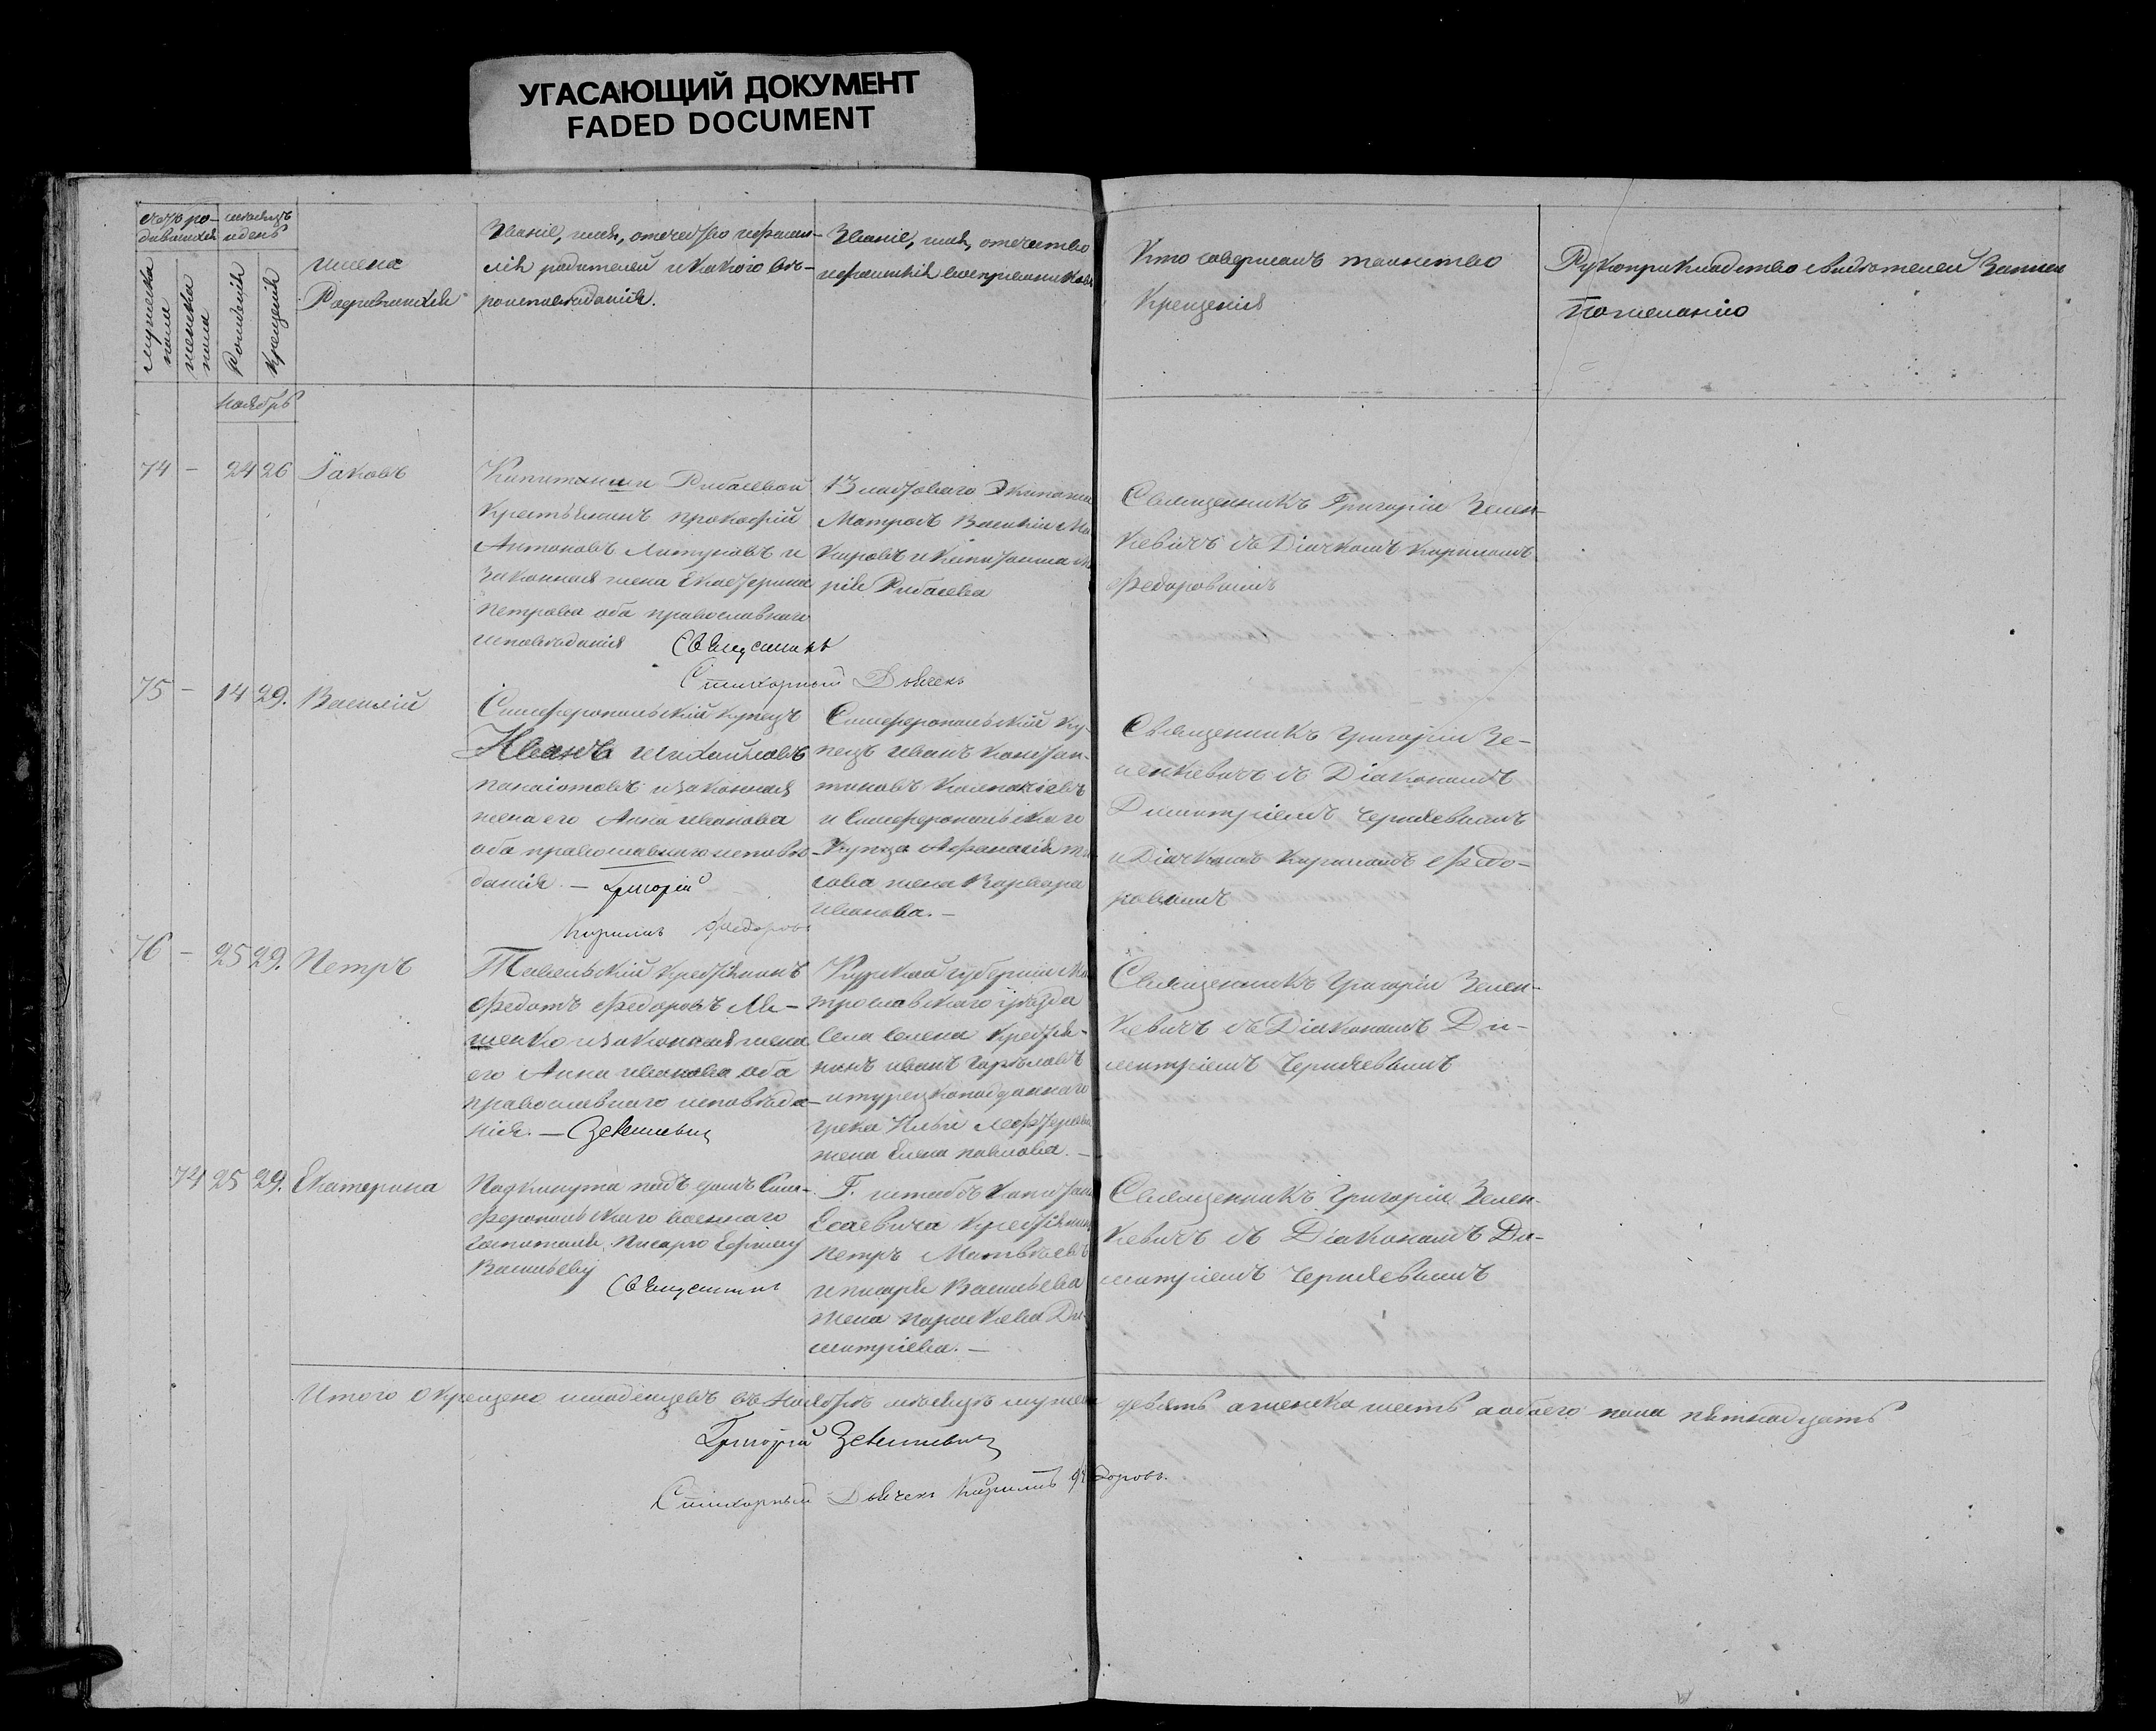 УГАСАЮЩИЙ ДОКУМЕНТ
FADED DOCUMENT
мѣсяцъ
и день
мужеска
пола
женска
пола
Рожденія
Крещенія
имена
Родившихся
Званіе, имя, отчество и фами-
лія родителей и какого вѣ-
роисповѣданія.
Званіе, имя, отчество
и фамилія воспріемниковъ
Кто совершалъ таинство
Крещенія
Рукоприкладство свидѣтелей Записи
по желанію
Ноябрь
74 – 24 26 Іаковъ
Крестьянинъ Прокофій
Антоновъ и
Законная жена Екатерина
Петрова оба православнаго
исповѣданія Священникъ
Стихарный Дьячекъ
Матросъ Василій
и Капитанша
Священникъ Григорій Зелен-
кевичъ съ Діячкомъ Кириломъ
Федоровымъ
75 – 14 29. Василій
Симферопольскій купецъ
Иванъ Михайловъ
Панаіотовъ и законная
жена его Анна Иванова
оба православнаго исповѣ-
данія. – Григорій
Кирилъ Федоровъ
Симферопольскій ку-
пецъ Иванъ Констан-
тиновъ
и Симферопольскаго
Купца Афанасія
жена Варвара
Иванова. –
Священникъ Григорій Зе-
ленкевичъ съ Діакономъ
Димитріемъ Чернявевымъ
и Діячкомъ Кириломъ Федо-
ровымъ
76 – 25 29. Петръ
крестьянинъ
Федотъ Федоровъ Ле-
шенко и законная жена
его Анна Иванова оба
православнаго исповѣда-
нія. – Зеленкевичъ
Курской губерніи
уѣзда
Села крестья-
нинъ Иванъ
и турецкоподданнаго
грека Ильи
жена Елена Павлова. –
Священникъ Григорій Зелен-
кевичъ съ Діакономъ Ди-
митріемъ Чернявевымъ
74 25 29. Екатерина
Подкинута подъ домъ Сим-
феропольскаго военнаго
госпиталя, Писарю Ефиму
Васильеву
Священникъ
Г. штабсъ Капитана
Есаевича крестьянинъ
Петръ Матвѣевъ
и писаря Васильева
жена Параскева Ди-
митріева. –
Священникъ Григорій Зелен-
кевичъ съ Діакономъ Ди-
митріемъ Чернявевымъ
Итого окрещено младенцевъ въ Ноябрѣ мѣсяцѣ мужеска девять а женска шесть а обоего пола пятнадцать
Григорій Зеленкевичъ
Стихарный Дьячекъ Кирилъ Федоровъ.